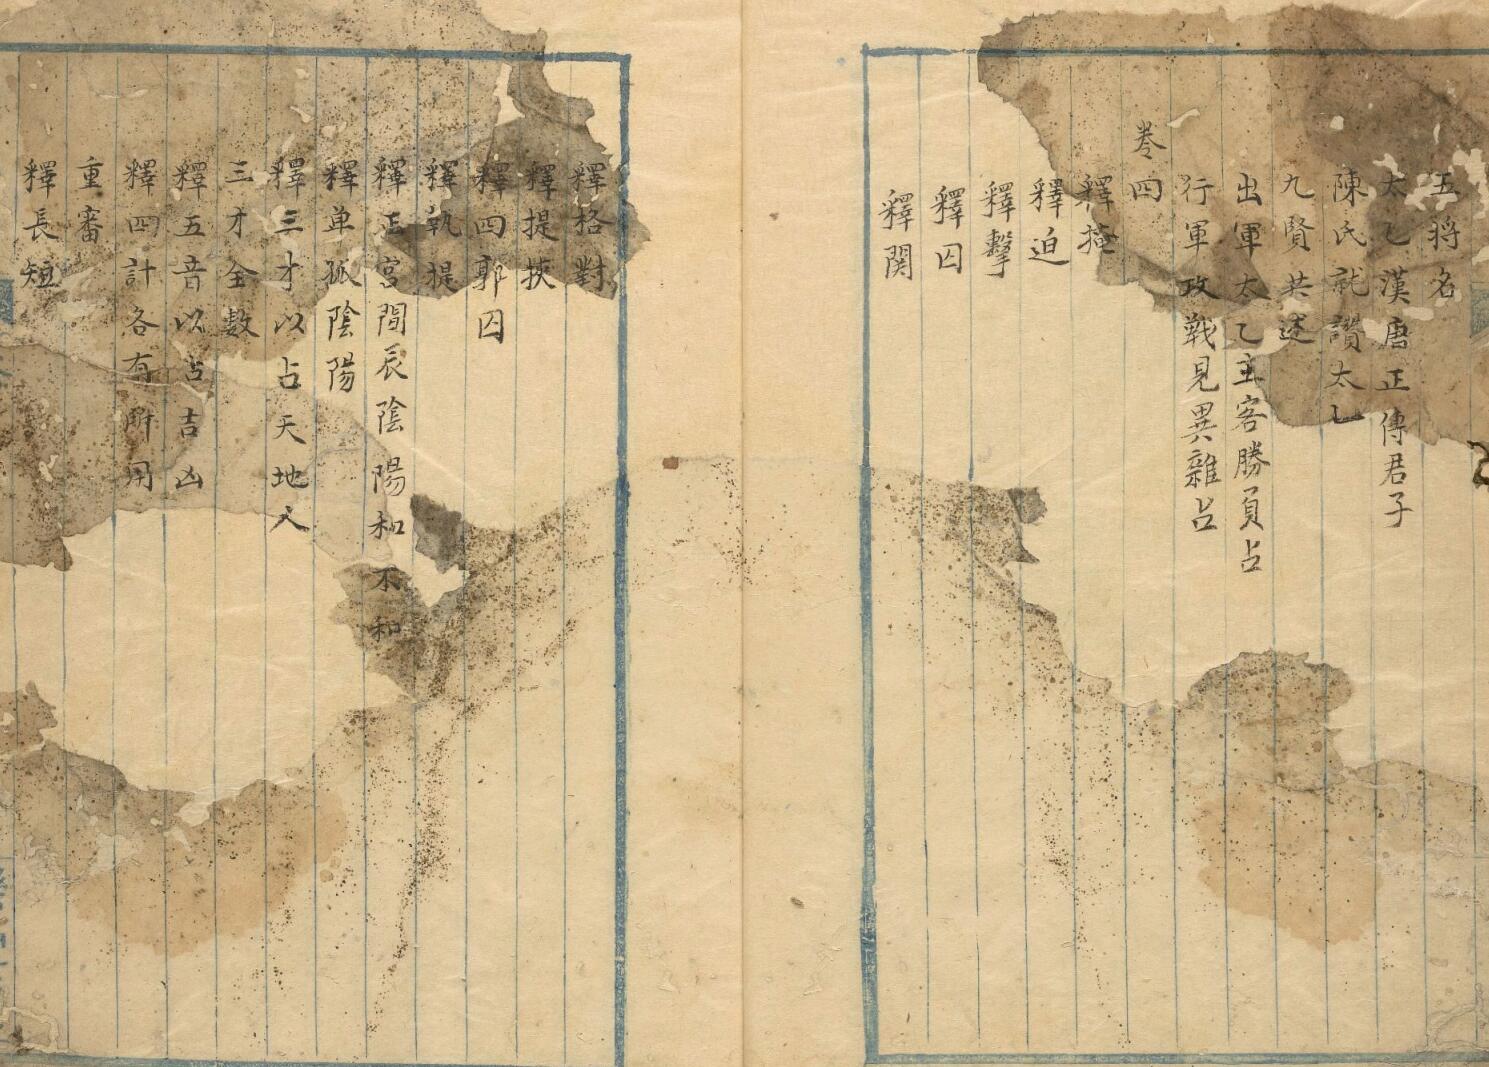 五將名
太乙漢唐正傳君子
陳氏就讚太乙
九賢共述
出軍太乙主客勝負占
行軍攻戦見異雜占
卷四
釋掩
釋迫
釋擊
釋囚
釋関
釋格對
釋提挾
釋四郭囚
釋執提
釋正宮間辰陰陽和不和
釋单孤陰陽
釋三才以占天地人
三才全數
釋五音以占吉凶
釋四計各有所用
重審
釋長短